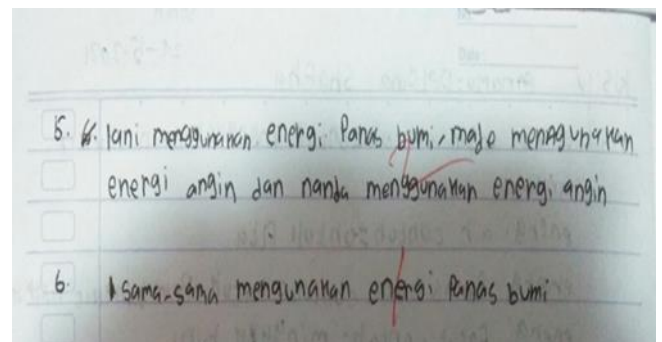 5. lani menggunanan energi Panas bumi, made menggunakan
energi angin dan nanda menggunakan energi angin
6. sama-sama mengunakan energi Panas bumi